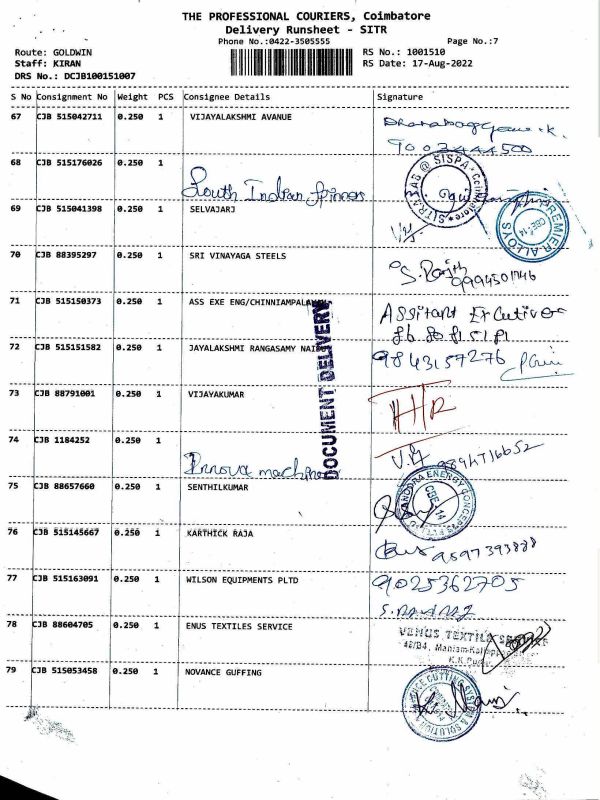 THE PROFESSIONAL COURIERS, Coimbatore
Delivery Runsheet - SITR
Phone No.:0422-3505555 Page No.:7
Route: GOLDWIN RS No.: 1001510
Staff: KIRAN RS Date: 17-Aug-2022
DRS No.: DCJB100151007
S No Consignment No Weight PCS Consignee Details Signature
67 CJB 515042711 0.250 1 VIJAYALAKSHMI AVANUE
68 CJB 515176026 0.250 1
South Indian Spinners
69 CJB 515041398 0.250 1 SELVAJARJ
PREMIER ALLOYS
CBE-14
70 CJB 88395297 0.250 1 SRI VINAYAGA STEELS
71 CJB 515150373 0.250 1 ASS EXE ENG/CHINNIAMPALAYAM
Assitant Excutive
DOCUMENT DELIVERY
72 CJB 515151582 0.250 1 JAYALAKSHMI RANGASAMY NAI
9843157276
73 CJB 88791001 0.250 1 VIJAYAKUMAR
74 CJB 1184252 0.250 1
Innova machines
75 CJB 88657660 0.250 1 SENTHILKUMAR
76 CJB 515145667 0.250 1 KARTHICK RAJA
9597393888
77 CJB 515163091 0.250 1 WILSON EQUIPMENTS PLTD
9025362705
78 CJB 88604705 0.250 1 ENUS TEXTILES SERVICE
VENUS TEXTILE SERVICE
79 CJB 515053458 0.250 1 NOVANCE GUFFING